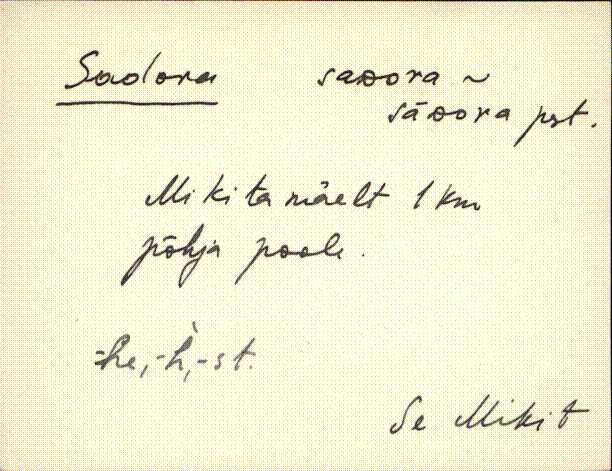 Sadora saᴅora ~
sāᴅora pst.
Mikita mäelt 1 km
põhja poole.
-he, -h, -st.
Se Mikit